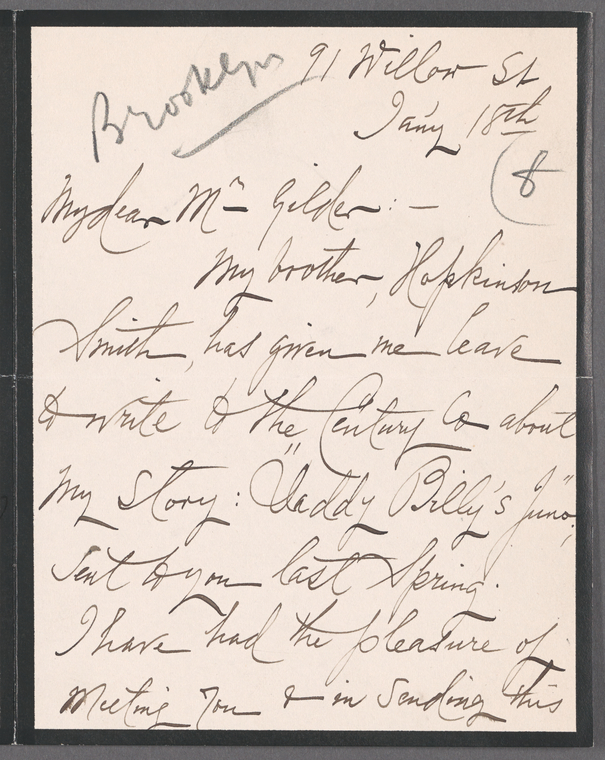 Brooklyn
91 Willow St
Jan'y 18th
8
My dear Mr Gilder: —
My brother, Hopkinson
Smith, has given me leave
to write to the Century Co about
my story: "Daddy Billy's Juno",
sent to you last Spring.
I have had the pleasure of
meeting you & in sending this